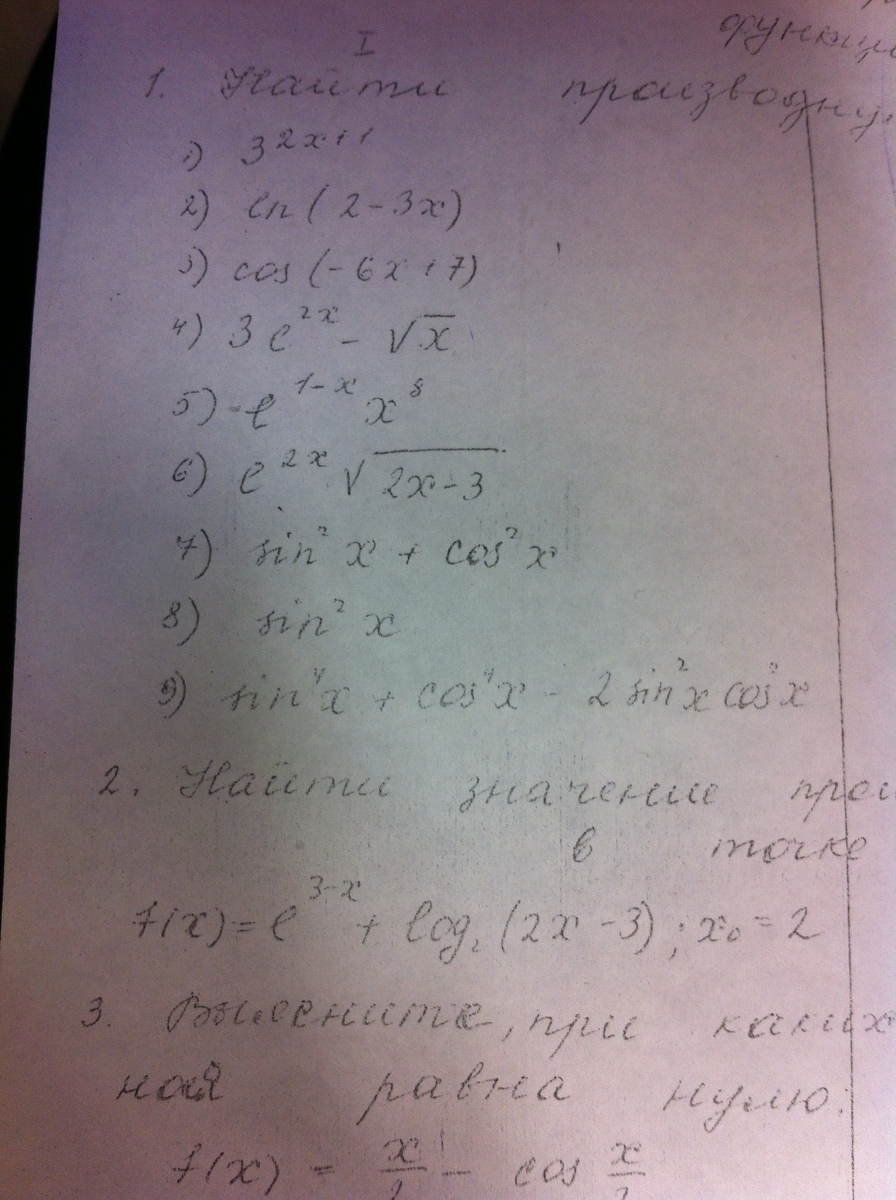 функци
I
1. Найти производну
1) 3^{2x+1}
2) ln(2-3x)
3) cos(-6x+7)
4) 3e^{2x} - √x
5) -e^{1-x} x^8
6) e^{2x} √(2x-3)
7) sin²x + cos²x
8) sin²x
9) sin⁴x + cos⁴x - 2 sin²x cos²x
2. Найти значение прои
в точке
f(x) = e^{3-x} + log₂(2x-3); x₀ = 2
3. Выясните, при каких
ная равна нулю:
f(x) = x/2 - cos x/2